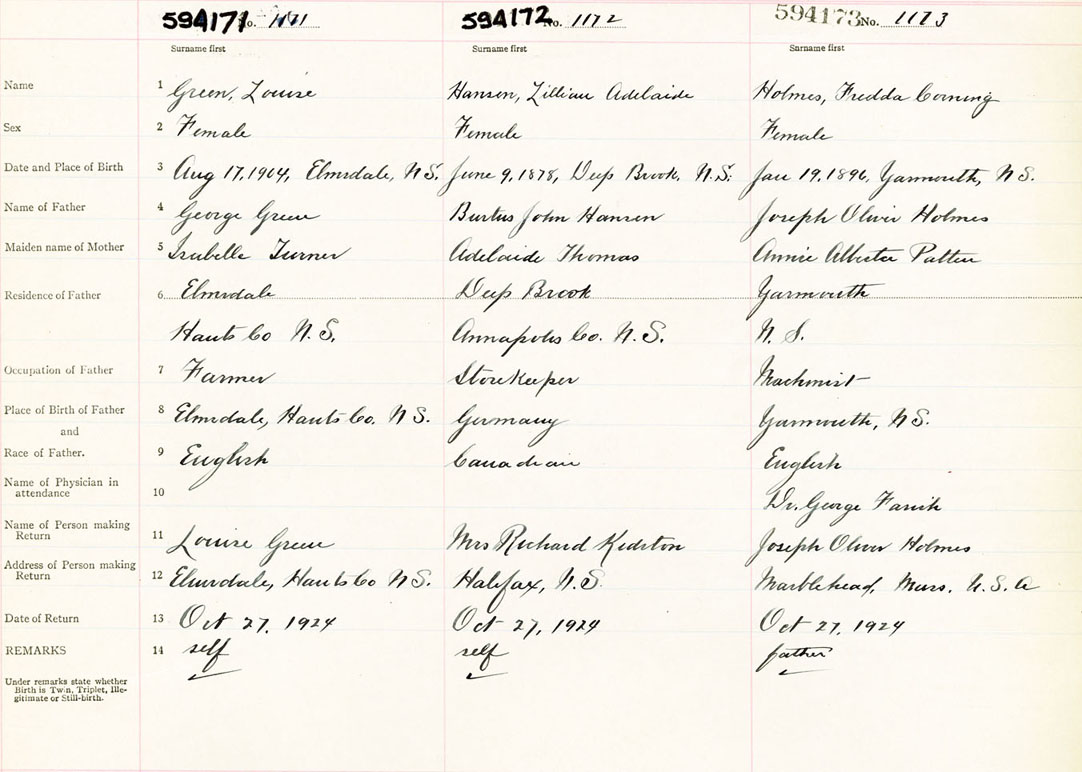 594171 No. 1171 594172 No. 1172 594173 No. 1173
Surname first Surname first Surname first
Name 1 Green, Louise Hansen, Lillian Adelaide Holmes, Fredda Corning
Sex 2 Female Female Female
Date and Place of Birth 3 Aug 17, 1904, Elmsdale, N.S. June 9, 1878, Deep Brook, N.S. Jan 19, 1896, Yarmouth, N.S.
Name of Father 4 George Green Burtus John Hansen Joseph Oliver Holmes
Maiden name of Mother 5 Isabelle Turner Adelaide Thomas Annie Alberta Patten
Residence of Father 6 Elmsdale Deep Brook Yarmouth
Hants Co N.S. Annapolis Co. N.S. N.S.
Occupation of Father 7 Farmer Storekeeper Machinist
Place of Birth of Father 8 Elmsdale, Hants Co. N.S. Germany Yarmouth, N.S.
and
Race of Father. 9 English Canadian English
Name of Physician in
attendance 10 Dr. George Farish
Name of Person making
Return 11 Louise Green Mrs Richard Kidston Joseph Oliver Holmes
Address of Person making
Return 12 Elmsdale, Hants Co N.S. Halifax, N.S. Marblehead, Mass. U.S.A
Date of Return 13 Oct 27, 1924 Oct 27, 1924 Oct 27, 1924
REMARKS 14 self self father
Under remarks state whether
Birth is Twin, Triplet, Ille-
gitimate or Still-birth.